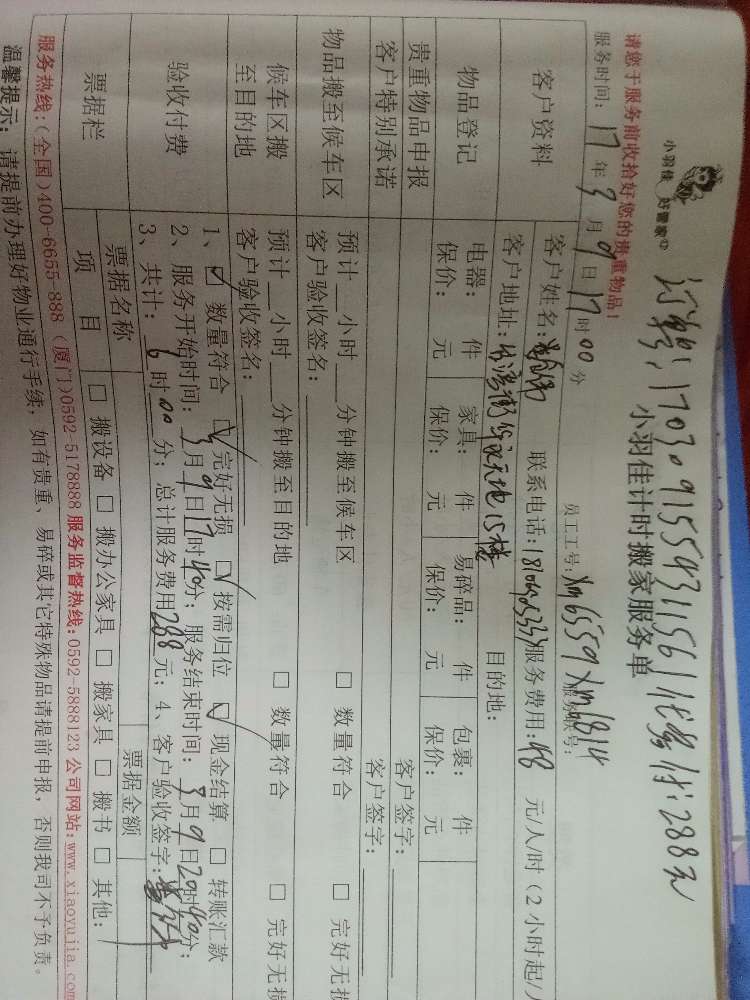 订单号:1703091559431561 代客付:288元
小羽佳 好管家
小羽佳计时搬家服务单
请您于服务前收拾好您的贵重物品!
员工工号:Xm6559 Xm6814
服务时间:17年3月9日17时00分
客户资料
客户姓名: 联系电话: 服务费用:48 元/人/时(2小时起/
客户地址: 目的地:
物品登记
电器: 件 家具: 件 易碎品: 件 包裹: 件
保价: 元 保价: 元 保价: 元 保价: 元
贵重物品申报 客户签字:
客户特别承诺 客户签字:
物品搬至候车区
预计 小时 分钟搬至候车区 □ 数量符合 □ 完好无损
客户验收签名:
候车区搬至目的地
预计 小时 分钟搬至目的地 □ 数量符合 □ 完好无损
客户验收签名:
验收付费
1、☑ 数量符合 ☑ 完好无损 ☑ 按需归位 ☑ 现金结算 □ 转账汇款
2、服务开始时间:3月9日17时40分;服务结束时间:3月9日20时40分;
3、共计:6时00分;总计服务费用288元;4、客户验收签字:
票据栏
票据名称 票据金额
项目 □ 搬设备 □ 搬办公家具 □ 搬家具 □ 搬书 □ 其他:
服务热线:(全国)400-6655 888 (厦门)0592-5178888 服务监督热线:0592-5888123 公司网站:www.xiaoyujia.com
温馨提示:请提前办理好物业通行手续,如有贵重、易碎或其它特殊物品请提前申报,否则我司不予负责。